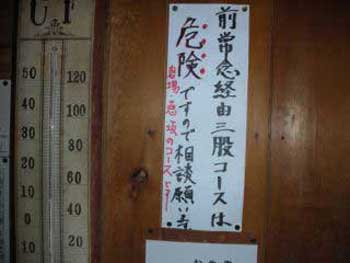 前常念経由三股コースは
危険ですので相談願います
岩場・悪坂のコースです
C F
50 120
40 100
30 80
20 60
10 40
0 20
10